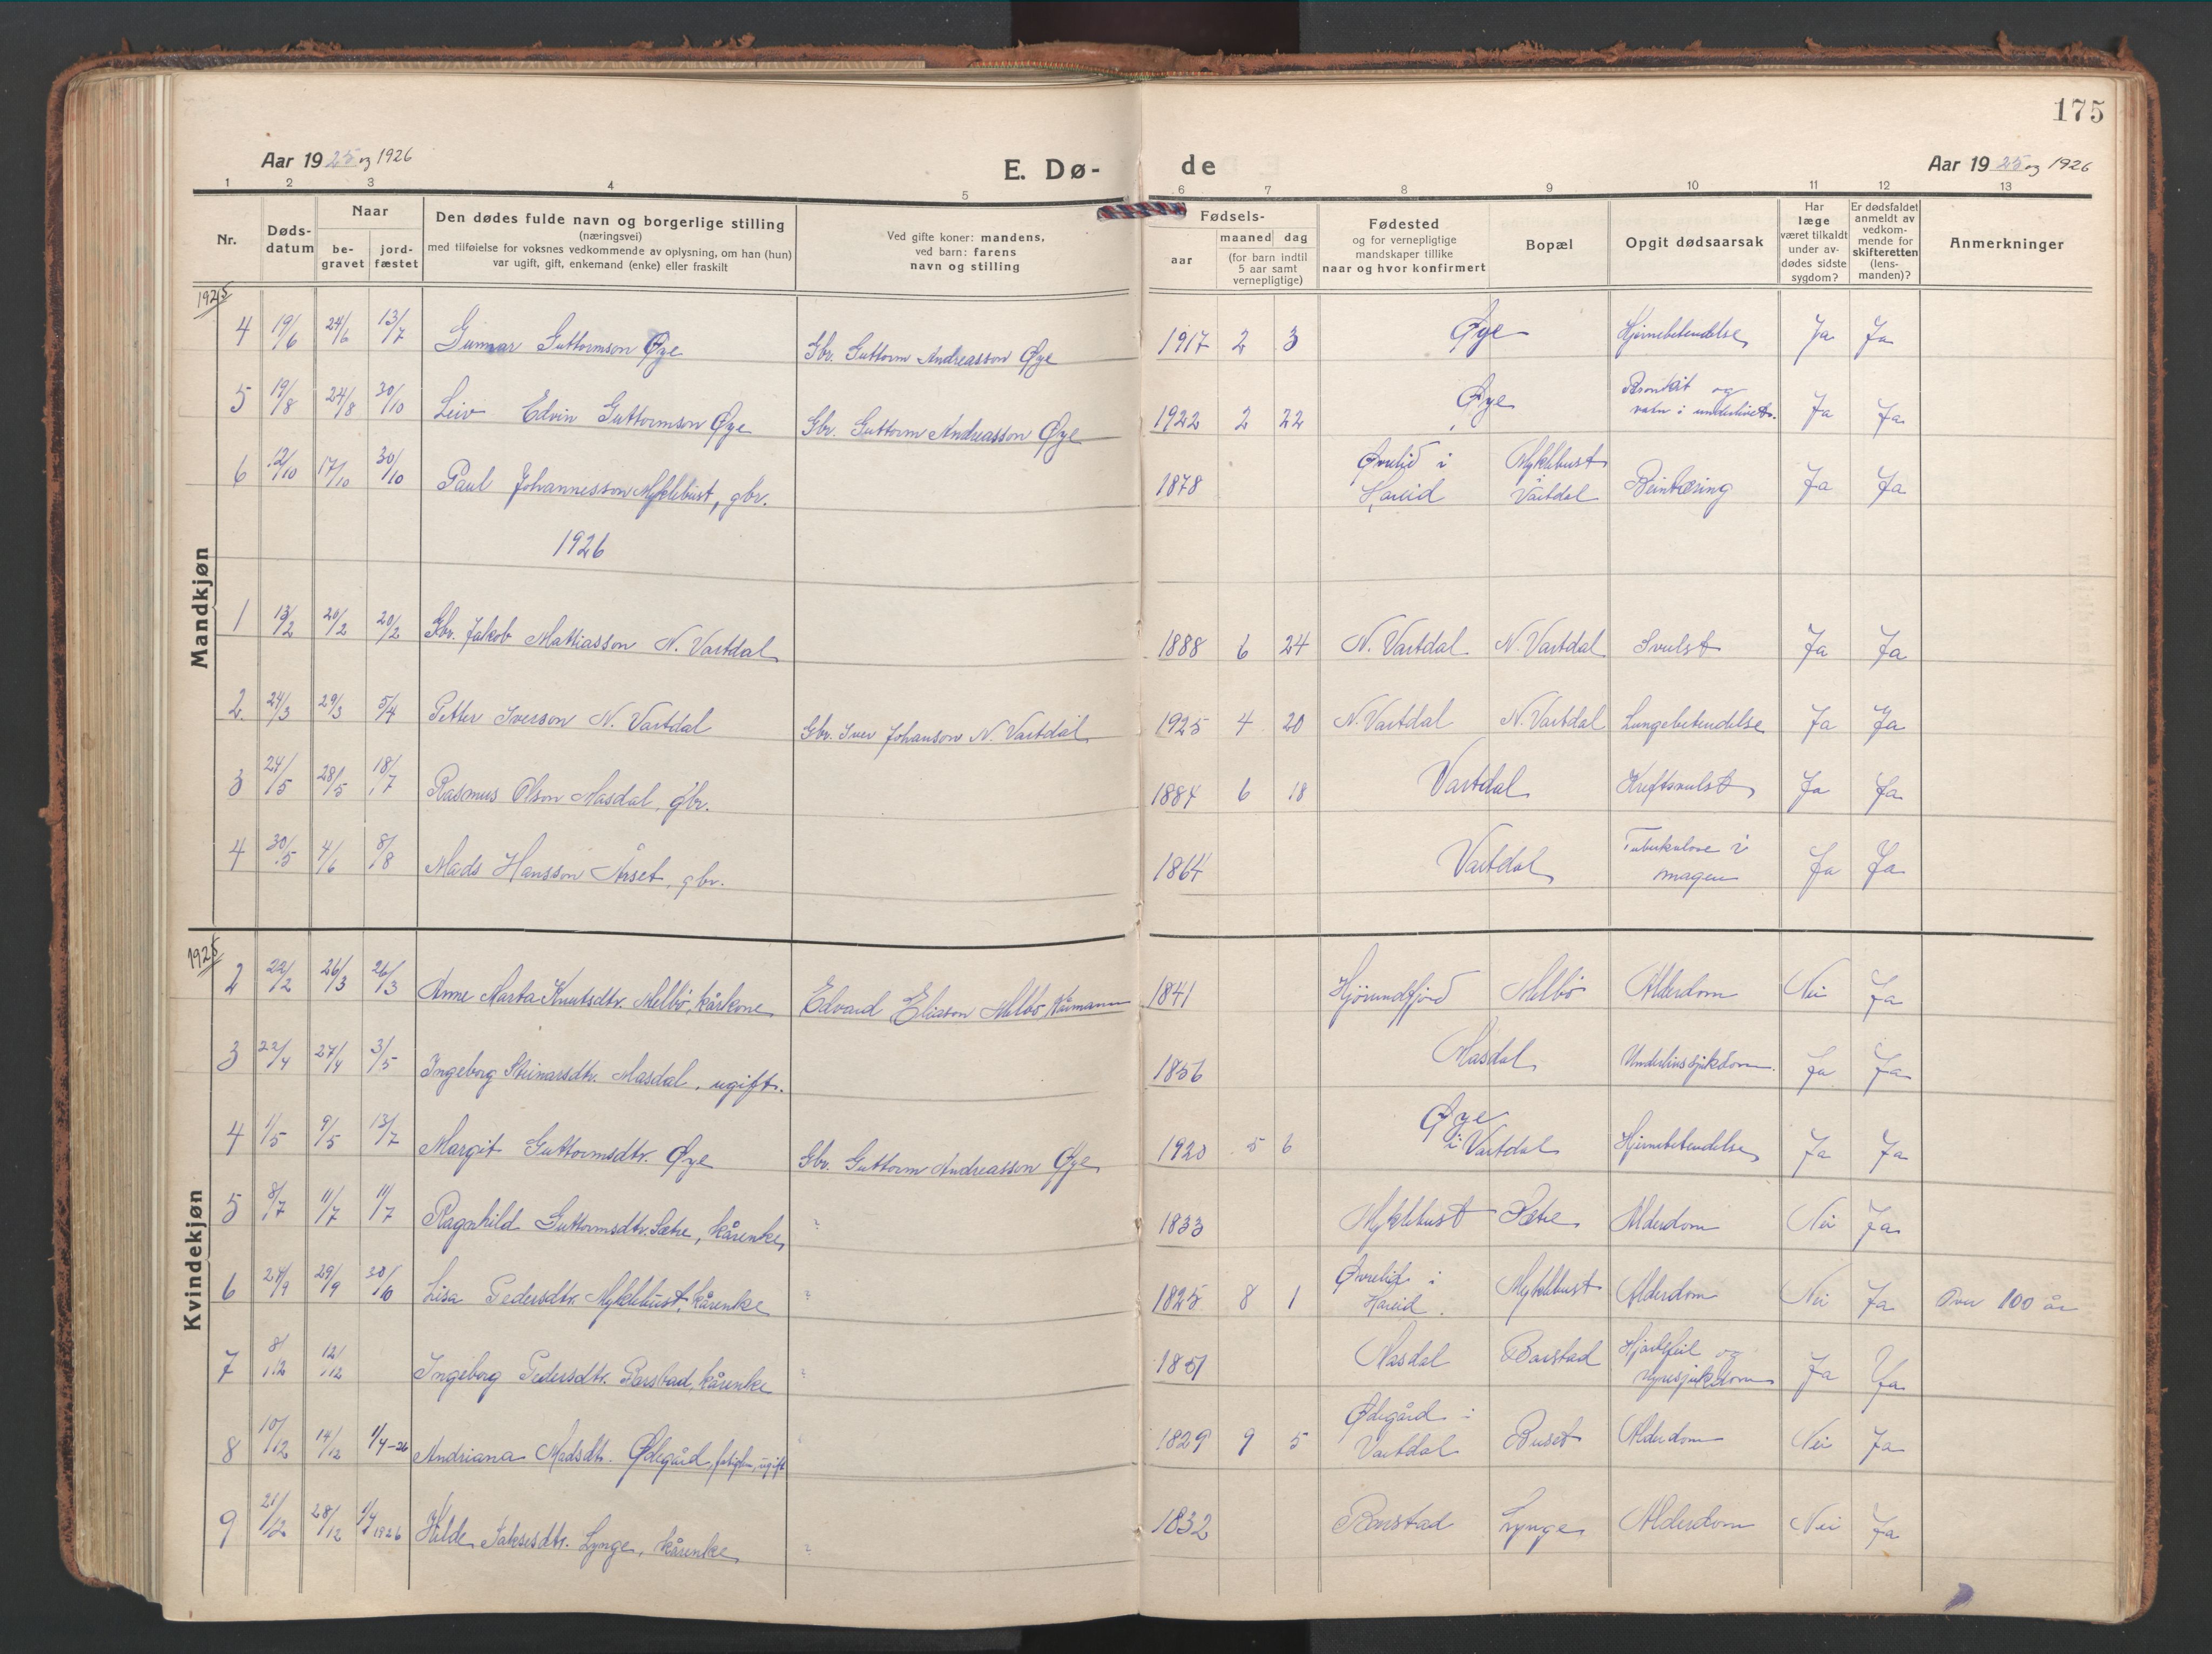 175
Aar 1925 og 1926
E. Dø-
de
Aar 1925 og 1926
1 2 3 4 5 6 7 8 9 10 11 12 13
Nr.
Døds-
datum
Naar
be-
gravet
jord-
fæstet
Den dødes fulde navn og borgerlige stilling
(næringsvei)
med tilføielse for voksnes vedkommende av oplysning, om han (hun)
var ugift, gift, enkemand (enke) eller fraskilt
Ved gifte koner: mandens,
ved barn: farens
navn og stilling
Fødsels-
aar
maaned dag
(for barn indtil
5 aar samt
vernepligtige)
Fødested
og for vernepligtige
mandskaper tillike
naar og hvor konfirmert
Bopæl
Opgit dødsaarsak
Har
læge
været tilkaldt
under av-
dødes sidste
sygdom?
Er dødsfaldet
anmeldt av
vedkom-
mende for
skifteretten
(lens-
manden)?
Anmerkninger
Mandkjøn
1925
4 19/6 24/6 13/7 Gunnar Guttormson Øye Gbr. Guttorm Andreasson Øye 1917 2 3 Øye Hjernebetendelse Ja Ja
5 19/8 24/8 30/10 Leiv Edvin Guttormson Øye Gbr. Guttorm Andreasson Øye 1922 2 22 Øye Bronkit og
vatn i underlivet. Ja Ja
6 12/10 17/10 30/10 Paul Johannesson Myklebust, gbr. 1878 Øvrelid i
Hareid Myklebust
i Vartdal Beintæring Ja Ja
1926
1 13/2 20/2 20/2 Gbr. Jakob Mattiasson N. Vartdal 1888 6 24 N. Vartdal N. Vartdal Svulst Ja Ja
2 24/3 29/3 5/4 Petter Iverson N. Vartdal Gbr. Iver Johanson N. Vartdal 1925 4 20 N. Vartdal N. Vartdal Lungebetendelse Ja Ja
3 24/5 28/5 18/7 Rasmus Olson Masdal, gbr. 1884 6 18 Vartdal Kreftsvulst Ja Ja
4 30/5 4/6 8/8 Mads Hansson Årset, gbr. 1864 Vartdal Tuberkulose i
magen Ja Ja
Kvindekjøn
1925
2 22/2 26/3 26/3 Anne Marta Knutsdtr. Melbö, kårkone Edvard Eliason Melbö, kårmann 1841 Hjørundfjord Melbö Alderdom Nei Ja
3 22/4 27/4 3/5 Ingeborg Steinarsdtr. Masdal, ugift. 1856 Masdal Underlivssjukdom. Ja Ja
4 1/5 9/5 13/7 Margit Guttormsdtr. Øye Gbr. Guttorm Andreasson Øye 1920 5 6 Øye
i Vartdal Hjernebetendelse Ja Ja
5 8/7 11/7 11/7 Ragnhild Guttormsdtr. Sætre, kårenke ? 1833 Myklebust Sætre Alderdom Nei Ja
6 24/9 29/9 30/10 Lisa Pedersdtr. Myklebust, kårenke ? 1825 8 1 Øvrelid i
Hareid. Myklebust Alderdom Nei Ja Over 100 år
7 8/12 12/12 Ingeborg Pedersdtr. Barstad, kårenke ? 1851 Masdal Barstad Hjartefeil og
nyresjukdom Ja Ja
8 10/12 14/12 1/4-26 Andriana Madsdtr. Ødegård, ugift 1829 9 5 Ødegård i
Vartdal Buset Alderdom Nei Ja
9 21/12 28/12 1/4 1926 Hilde Lynge, kårenke ? 1832 Barstad Lynge Alderdom Nei Ja